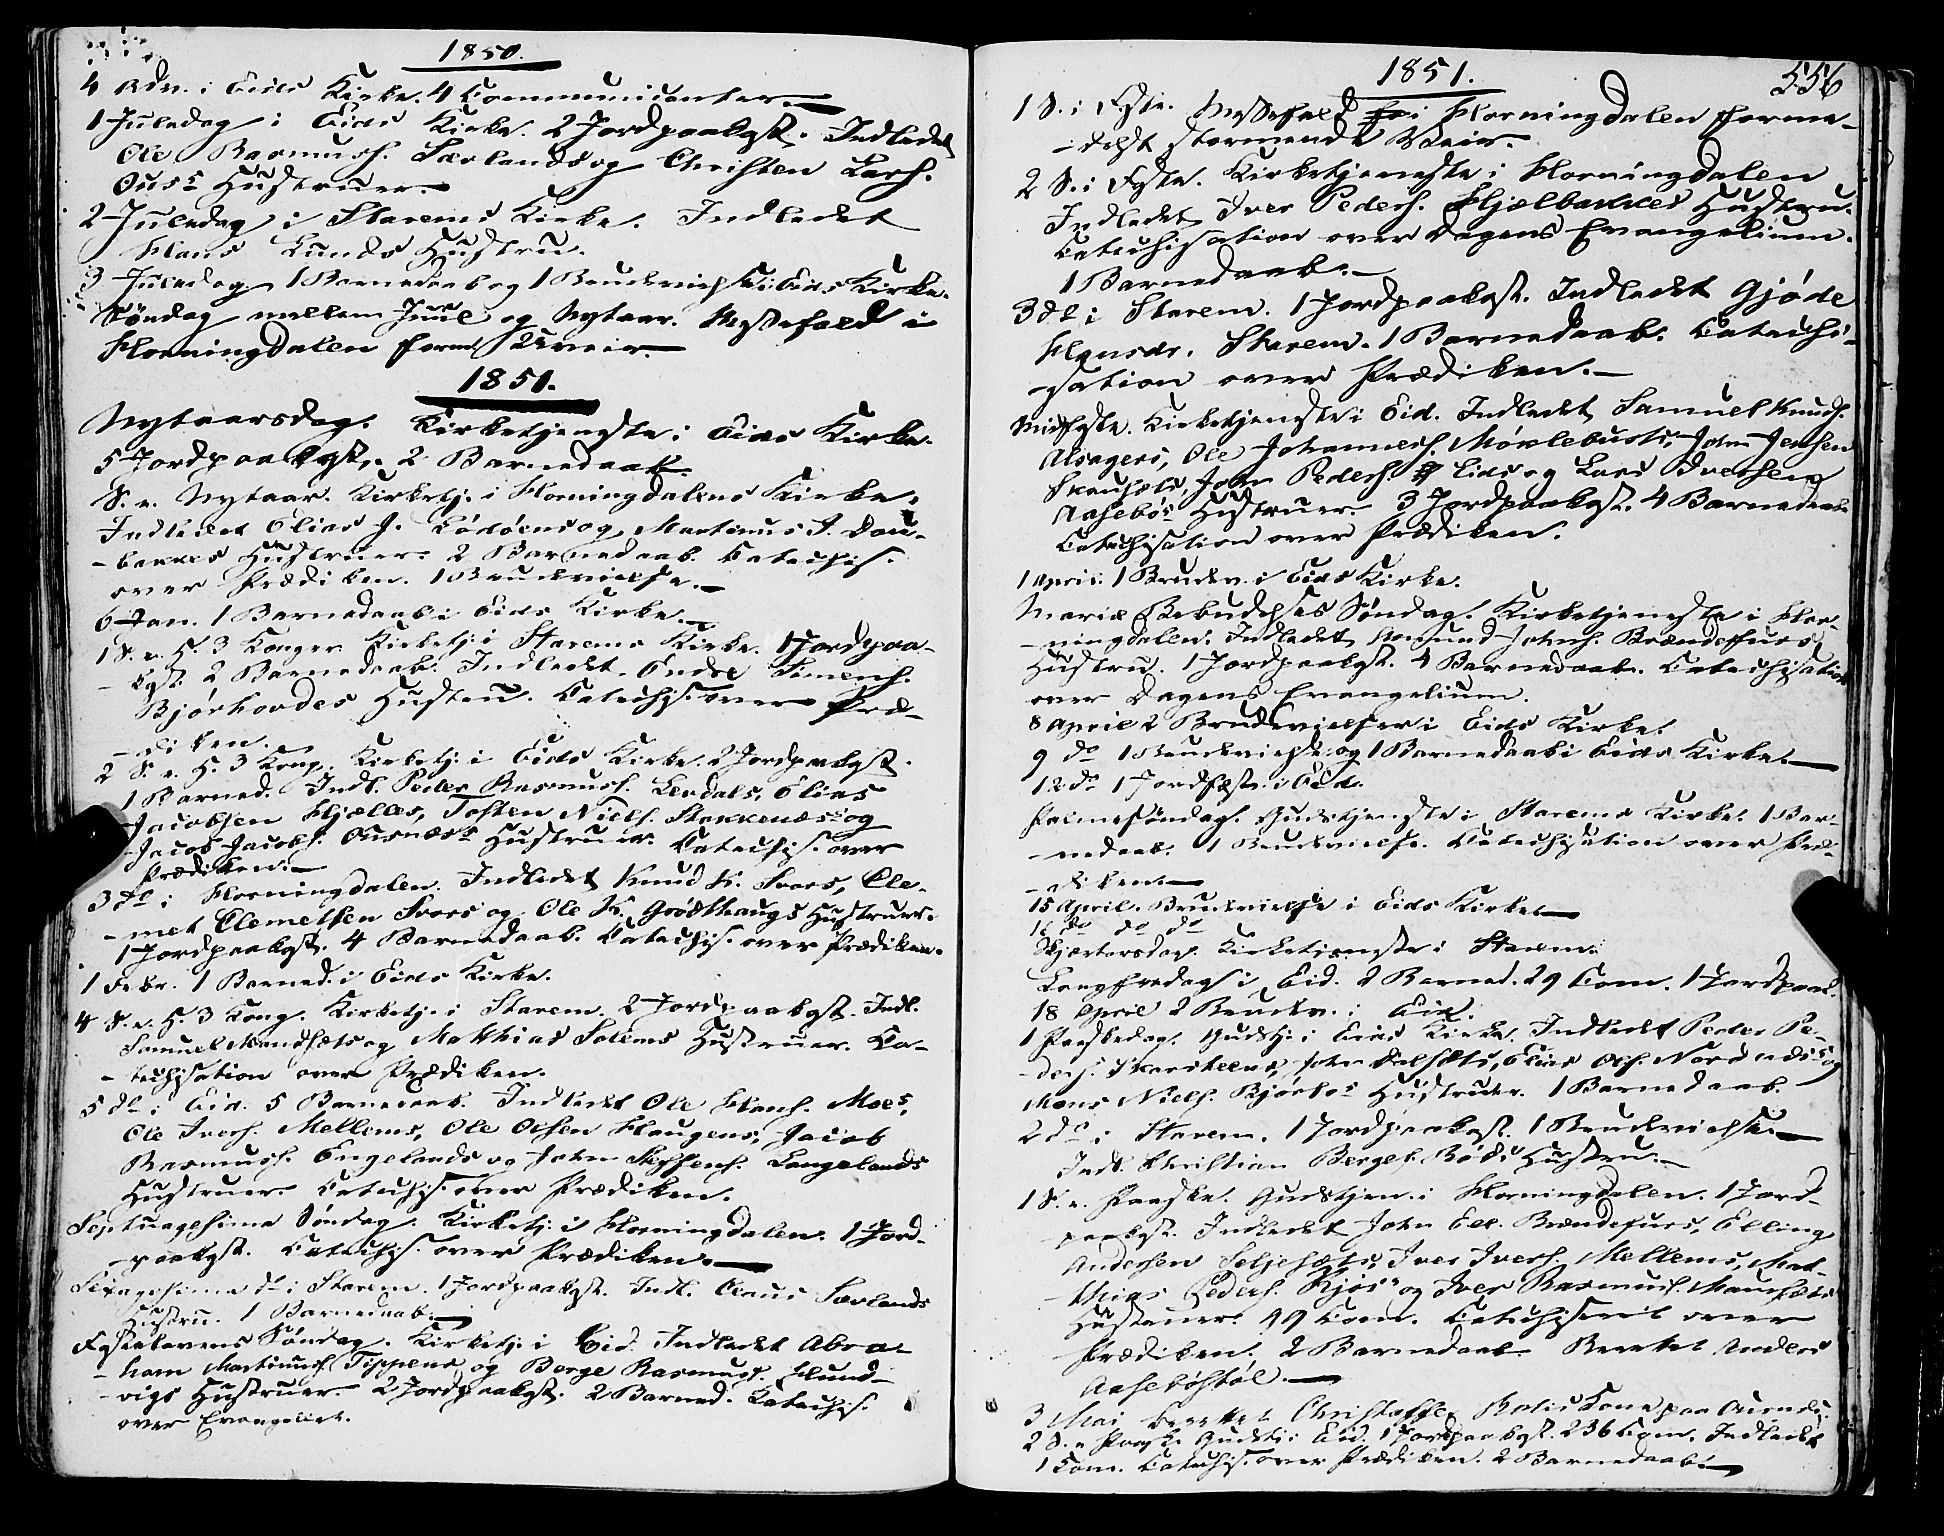 1850.
4 Adv. i Eids Kirke. 4 Communicanter.
1 Juledag i Eids Kirke. 2 Jordpaakast. Indledet
Ole Rasmuss. Sørlands og Christen Lars.
Ous's Hustruer.
2 Juledag i Starems Kirke. Indledet
Hans Lunds Hustru.
3 Juledag 1 Barnedaab og 1 Brudevielse i Eids Kirke.
Søndag mellem Juul og Nytaar. Messefald i
Horningdalen form. Uveir.
1851.
Nytaarsdag. Kirketjeneste i Eids Kirke.
5 Jordpaakast. 2 Barnedaab.
S. e. Nytaar. Kirketj. i Horningdalens Kirke.
Indledet Elias J. Lødøens og Martinus J. Dau-
-bakkes Hustruer. 2 Barnedaab. Catechis.
over Prædiken. 1 Brudevielse.
6 Jan. 1 Barnedaab i Eids Kirke.
1 S. e. H. 3 Konger Kirketj. i Starems Kirke. 1 Jordpaa-
-kast. 2 Barnedaab. Indledet Endre Simens.
Bjørhovdes Hustru. Catechis. over Præ-
-diken.
2 S. e. H. 3 Kong. Kirketj. i Eids Kirke. 2 Jordpakast.
1 Barned. Indl. Peder Rasmuss. Levdals, Elias
Jacobsen Hjelles, Tosten Niels. Stokkenæs og
Jacob Jacobs. Ousnæs's Hustruer. Catechis. over
Prædiken.
3 do i Horningdalen. Indledet Knud K. Svors, Cle-
-met Clemetsen Svors og Ole K. Grødthaugs Hustruer.
1 Jordpaakast. 4 Barnedaab. Catechis. over Prædiken.
1 Febr. 1 Barned. i Eids Kirke.
4 S. e. H. 3 Kong. Kirketj. i Starem. 2 Jordpaakast. Indl.
Samuel Maudsæts og Matthias Solems Hustruer. Ca-
-techisation over Prædiken.
5 do i Eid. 5 Barnedaab. Indledet Ole Hans. Moes,
Ole Ivers. Mellems, Ole Olsen Haugens, Jacob
Rasmuss. Engelands og John Steffens. Langelands
Hustruer. Catechis. over Prædiken.
Septuagesima Søndag. Kirketj. i Horningdalen. 1 Jord-
-paakast. Catechis. over Prædiken.
Sexagesima do i Starem. 1 Jordpaakast. Indl. Claus Sørlands
Hustru. 1 Barnedaab.
Fastelavens Søndag. Kirketj. i Eid. Indledet Abra-
-ham Martinus. Tippens og Berge Rasmuss. Hund-
-vigs Hustruer. 2 Jordpaakast. 2 Barned. Catechis.
over Evangeliet.
1851. 556
1 S. i Faste. Messefald i Horningdalen forme-
-delst stormende Veir.
2 S. i Faste. Kirketjeneste i Horningdalen
Indledet Iver Peders. Hjælbakkes Hustru.
Catechisation over Dagens Evangelium.
1 Barnedaab.
3 do i Starem. 1 Jordpaakast. Indledet Gjøde
Hansdr. Starem. 1 Barnedaab. Catechi-
-sation over Prædiken.
Midfaste. Kirketjeneste i Eid. Indledet Samuel Knuds.
Alsagers, Ole Johannes. Møklebusts, John Jensen
John Peders. Eids og Lars Iversens
Aasebøs Hustruer. 3 Jordpaakast. 4 Barnedaab.
Catechisation over Prædiken.
1 April. 1 Brudev. i Eids Kirke.
Mariæ Bebudelses Søndag. Kirketjeneste i Hor-
-ningdalen. Indledet Johns. Brændefurs
Hustru. 1 Jordpaakast. 4 Barnedaab. Catechisation
over Dagens Evangelium.
8 April 2 Brudevielser i Eids Kirke.
9 do 1 Brudevielse og 1 Barnedaab i Eids Kirke.
12 do 1 Jordfæst. i Eid.
Palmesøndag. Gudstjeneste i Starems Kirke. 1 Bar-
-nedaab. 1 Brudevielse. Catechisation over Præ-
-diken.
15 April. Brudevielse i Eids Kirke.
16 do do do
Skjærtorsdag. Kirketjeneste i Starem.
Langfredag i Eid. 2 Barned. 29 Com. 1 Jordpaak.
18 April 2 Brudev. i Eid.
1 Paaskedag. Gudstj. i Eids Kirke. Indledet Peder Pe-
-ders. John Elias Ols. Nordnæs's og
Mons Niels. Bjørlos Hustruer. 1 Barnedaab.
2 do i Starem. 1 Jordpaakast. 1 Brudevielse.
Indl. Christian Berges. Bøds Hustru.
1 S. e. Paaske. Gudstjen. i Horningdalen. 1 Jord-
-paakast. Indledet John Ell. Brændefurs, Elling
Andersen Seljesæts, Iver Ivers. Mellems, Mat-
-thias Peders. Kjøs og Iver Rasmuss. Maursæts
Hustruer. 99 Com. Catechiseret over
Prædiken. 2 Barnedaab. Berettet Anders
Aasebøstøl.
3 Mai berettet Christoffer
2 S. e. Paaske Gudstj. i Eid. 1 Jordpaakast. 236 Com. Indledet
1 Com. Catechis. over Prædiken. 2 Barnedaab.